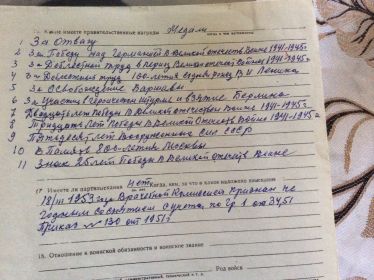 Какие имеете правительственные награды Медали
1 За Отвагу
2 За Победу над Германией в Великой отечеств Войне 1941-1945г
3 За Доблестный труд в период Великой отечеств Войны 1941-1945г
4 За Доблестный труд 100-летия со дня рожд В И Ленина
5 За Освобождение Варшавы
6 За Участие в Героическом штурме и взятие Берлина
7 Двадцать лет Победы в Великой отечеств Войне 1941-1945г
8 Тридцать лет Победы в Великой Отечеств Войне 1941-1945г
9 Пятьдесят лет Вооруженных Сил СССР
10 В Память 800-летия Москвы
11 Знак 25 лет Победы в Великой отечеств Войне
17 Имеете ли партвзыскания нет
когда, кем, за что и какое наложено взыскание
18/III 1953 года Врачебной Комиссией признан не
годным со снятием с учета, по гр 1
Приказ № 130 окт 1951г
18. Отношение к воинской обязанности и воинское звание
Род войск